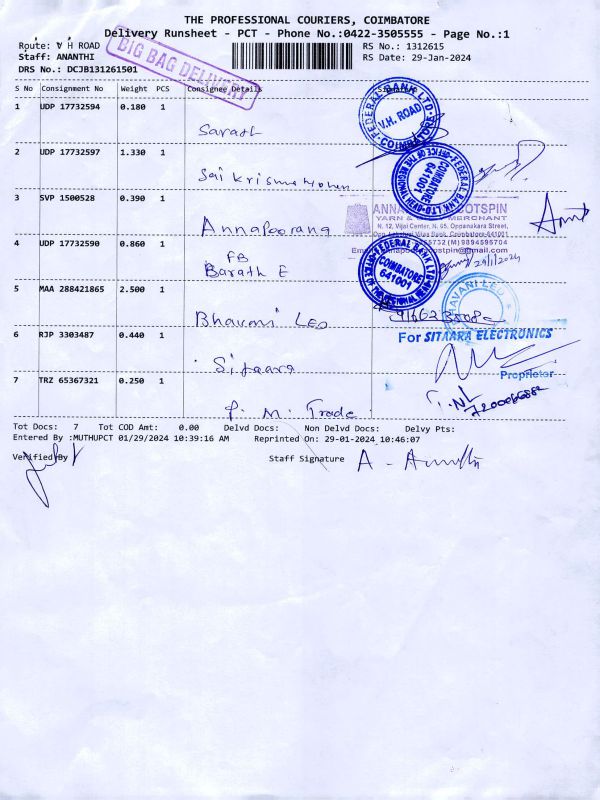 THE PROFESSIONAL COURIERS, COIMBATORE
Delivery Runsheet - PCT - Phone No.:0422-3505555 - Page No.:1
Route: V H ROAD
RS No.: 1312615
Staff: ANANTHI
RS Date: 29-Jan-2024
DRS No.: DCJB131261501
BIG BAG DELIVERY
S No Consignment No Weight PCS Consignee Details
1 UDP 17732594 0.180 1
Sarath
FEDERAL BANK LTD.
V.H. ROAD
COIMBATORE
2 UDP 17732597 1.330 1
Sai krishna Mohan
FEDERAL BANK LTD
COIMBATORE
641001
3 SVP 1500528 0.390 1
Annapoorana
YARN & MERCHANT
N. 12, Vijai Center, N. 95, Oppanakara Street,
Coimbatore-641001
(M)9894595704
4 UDP 17732590 0.860 1
FB
Barath E
FEDERAL BANK LTD
COIMBATORE
641001
29/1/2024
5 MAA 288421865 2.500 1
Bhavani Leo
6 RJP 3303487 0.440 1
Sitaara
For SITAARA ELECTRONICS
Proprietor
7 TRZ 65367321 0.250 1
P. M. Trade
Tot Docs: 7 Tot COD Amt: 0.00 Delvd Docs: Non Delvd Docs: Delvy Pts:
Entered By :MUTHUPCT 01/29/2024 10:39:16 AM Reprinted On: 29-01-2024 10:46:07
Verified By
Staff Signature